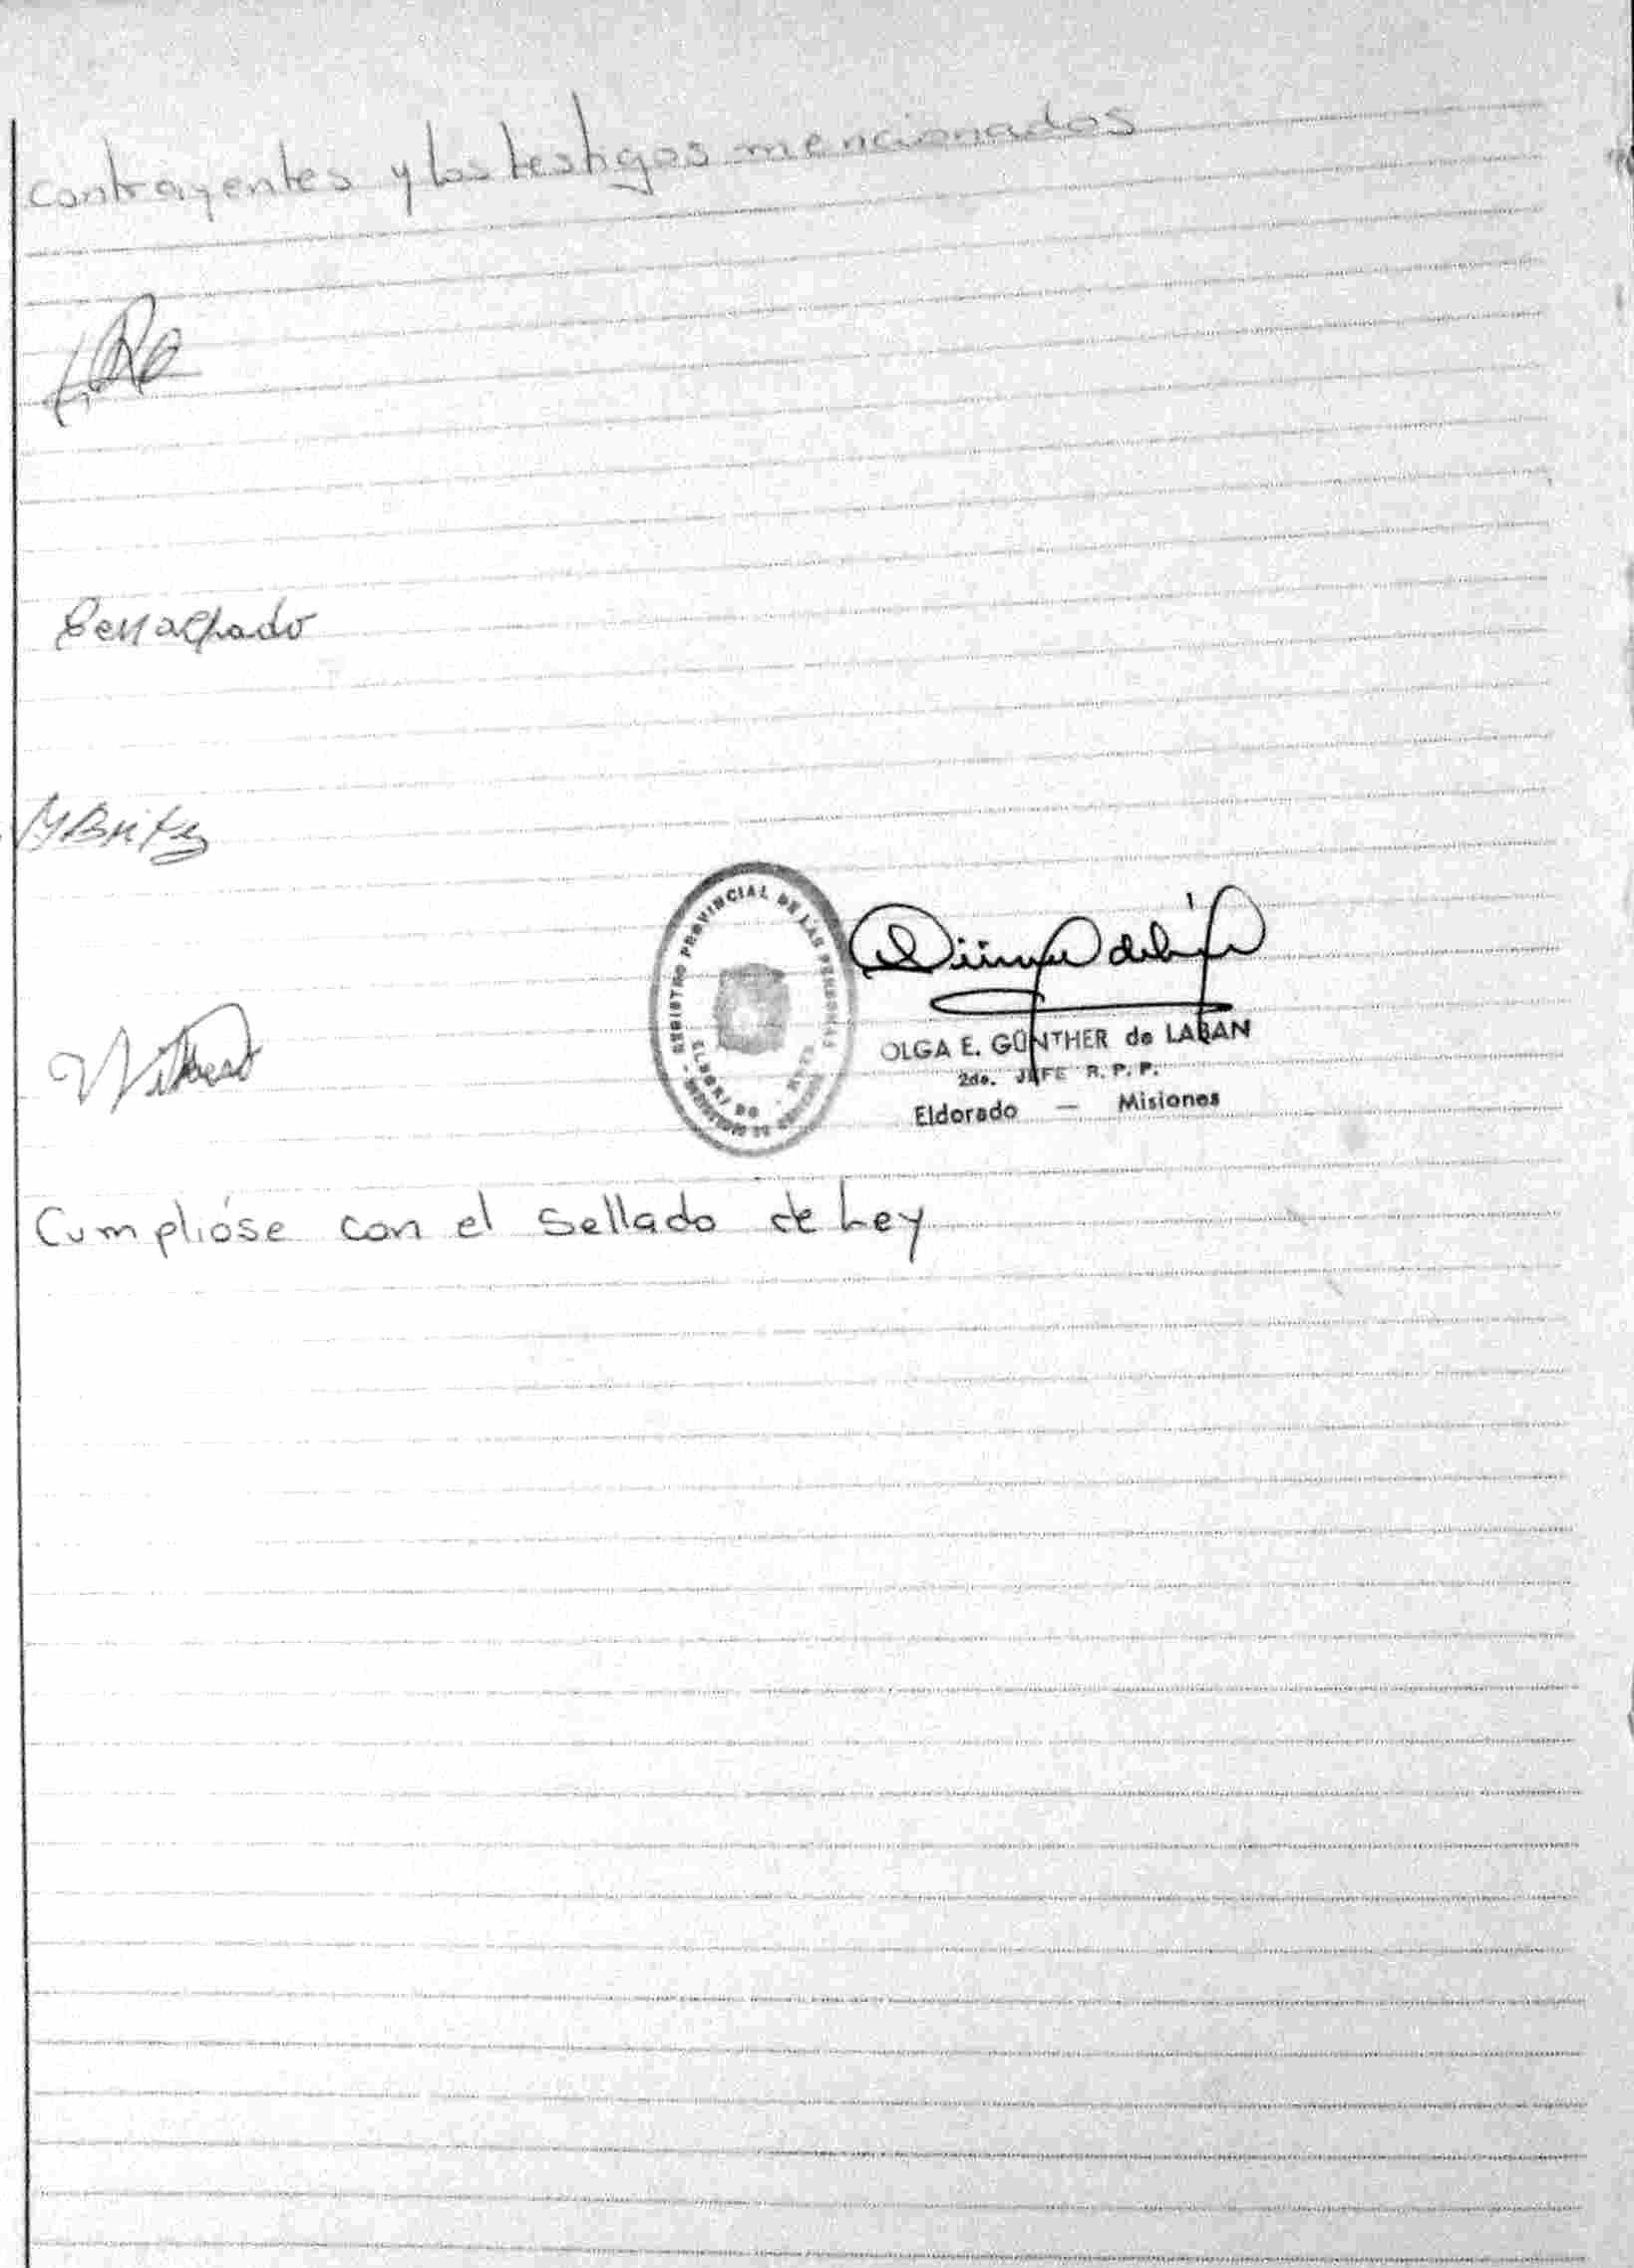 contrayentes y los testigos mencionados
MBritez
REGISTRO PROVINCIAL DE LAS PERSONAS
ELDORADO
OLGA E. GÜNTHER de LABAN
2do. JEFE R. P. P.
Eldorado — Misiones
Cumplióse con el sellado de Ley